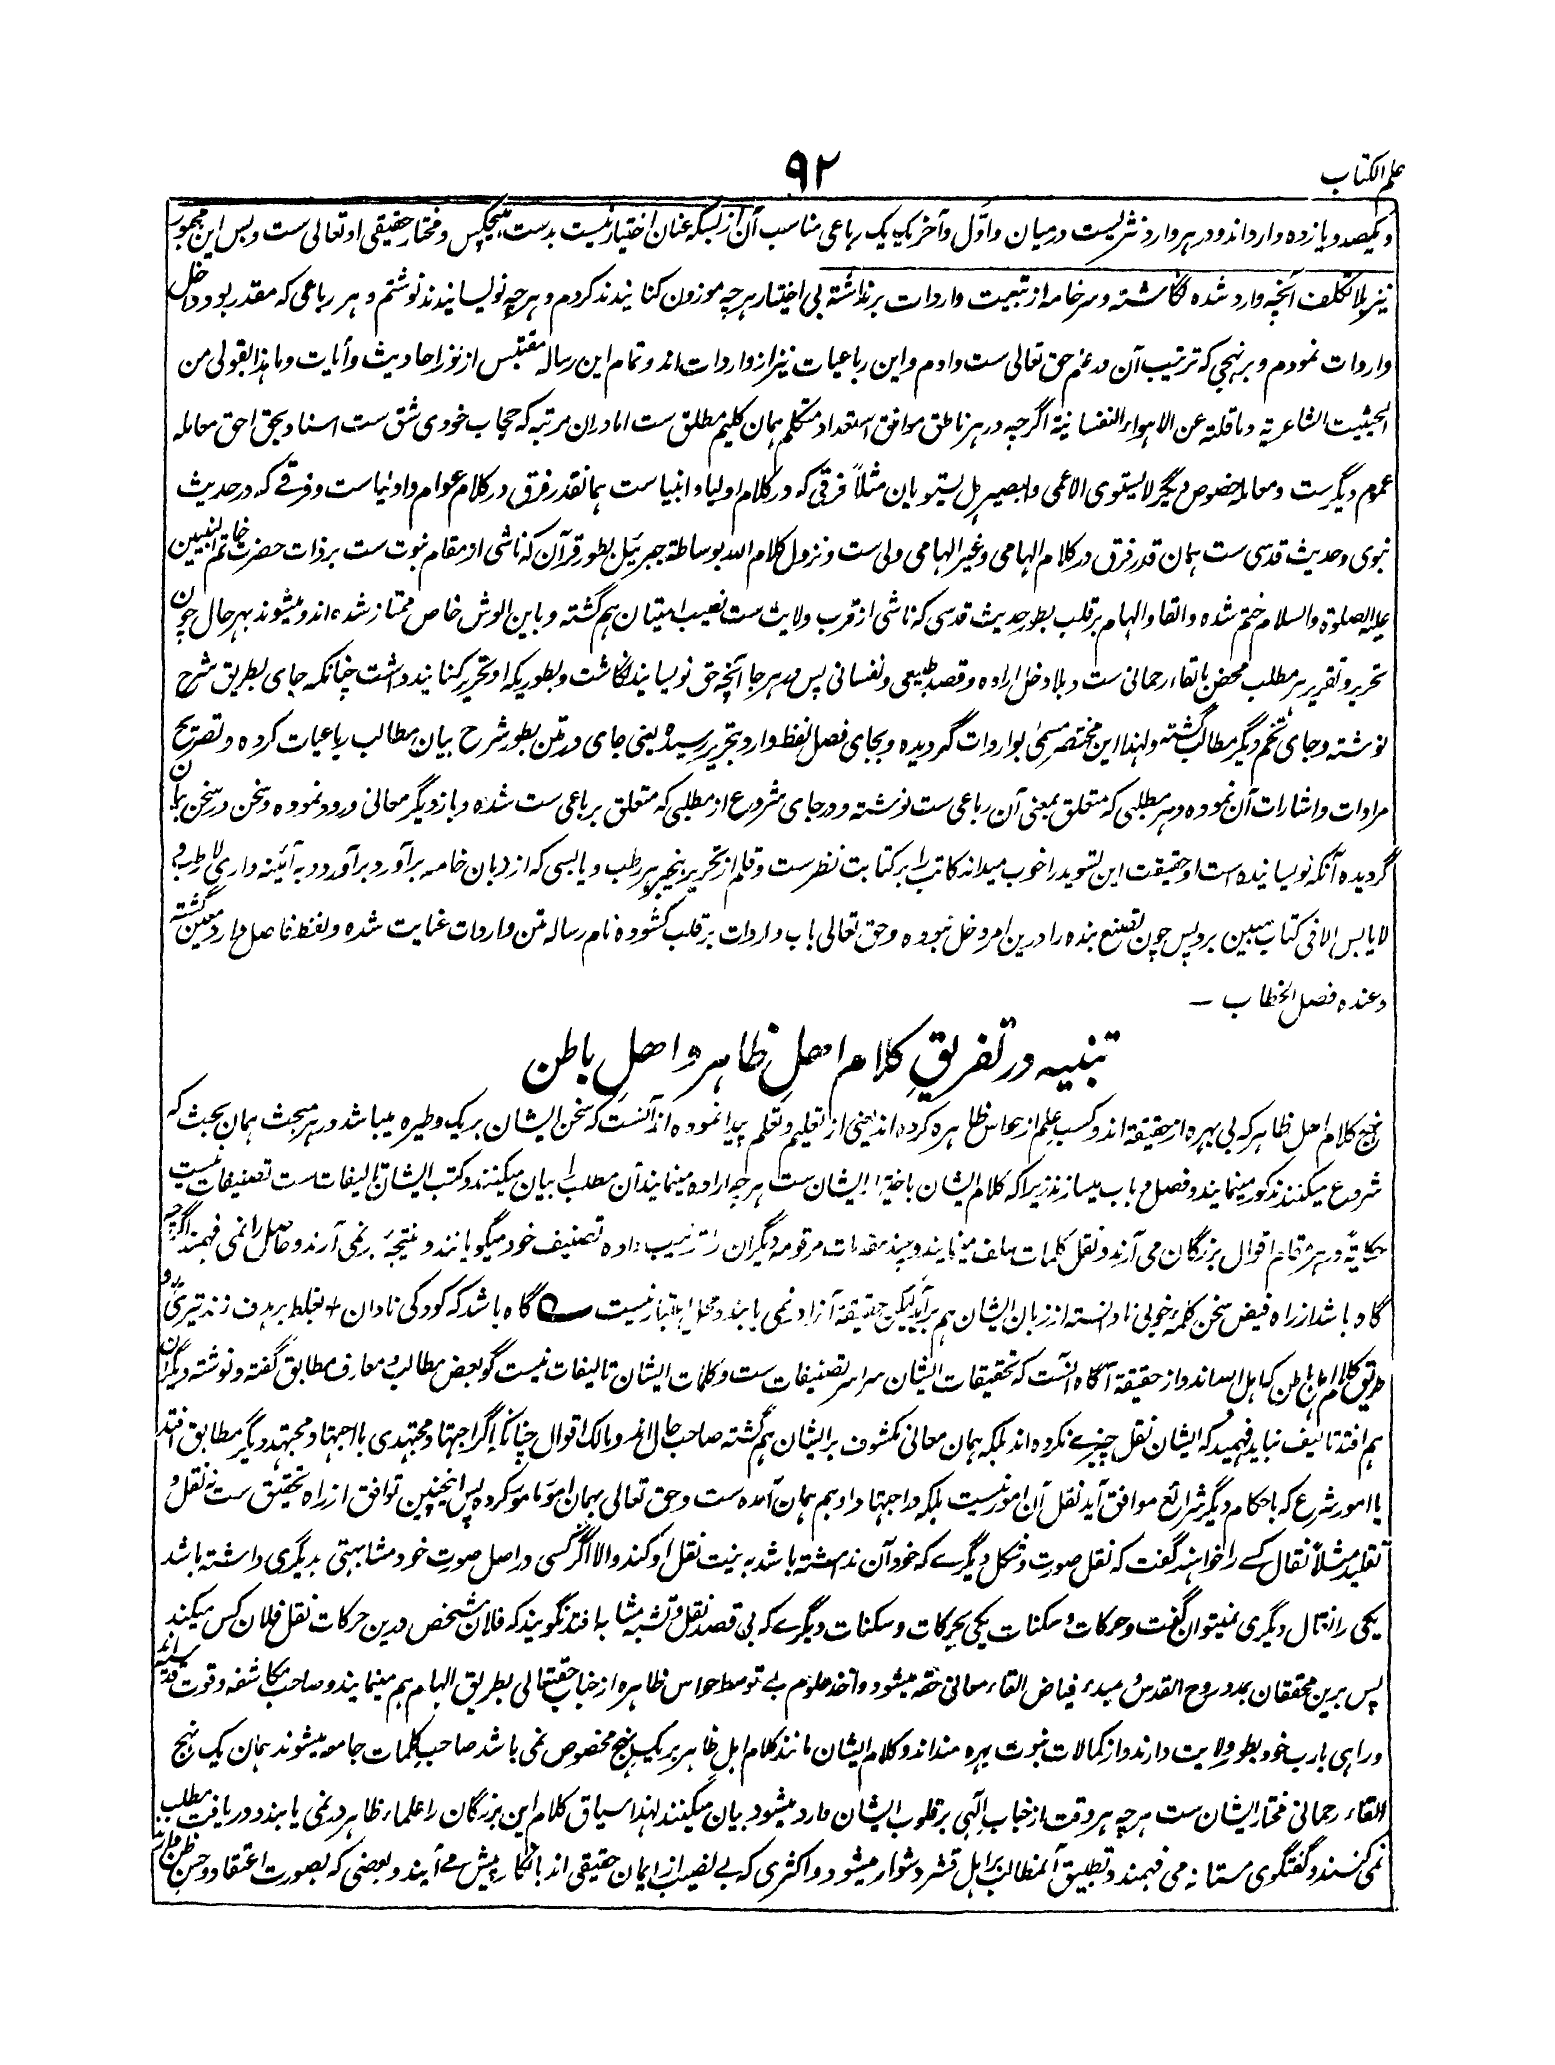 علم الکتاب
۹۲
ویکصد و یازده وارد اند و در هر وارد نثریست در میان و اوّل و آخر یک یک رباعی مناسب آن از بسکه عنان اختیار نیست بدست هیچکس و مختار حقیقی او تعالی ست و بس این مجبور
نیز بلا تکلف آنچه وارد شده نگاشته و سر خامه از تبعیت واردات برنداشته بی اختیار هرچه موزون کنانیدند کردم و هرچه نویسانیدند نوشتم و هر رباعی که مقدر بود داخل
واردات نمودم و بر نهجی که ترتیب آن در علم حق تعالی ست دادم و این رباعیات نیز از واردات اند و تمام این رساله مقتبس از نور احادیث و آیات و ما هذا بقولی من
الحیثیت الشاعریة و ما قلته عن الاهواء النفسانیة اگرچه در هر ناطق موافق استعداد متکلم همان کلیم مطلق ست اما دران مرتبه که حجاب خودی شق ست اسناد بحق احق معامله
عموم دیگرست و معامله خصوص دیگر لا یستوی الاعمی والبصیر هل یستویان مثلاً فرقی که در کلام اولیا و انبیاست همانقدر فرق در کلام عوام و اولیاست و فرقے که در حدیث
نبوی و حدیث قدسی ست همان قدر فرق در کلام الهامی و غیر الهامی ولی ست و نزول کلام الله بوساطة جبرئیل بطور قرآن که ناشی از مقام نبوت ست بر ذات حضرت خاتم النبیین
علیه الصلوة والسلام ختم شده و القا و الهام بر قلب بطور حدیث قدسی که ناشی از قرب ولایت ست نصیب امتیان هم گشته و باین الوش خاص ممتاز شده اند و میشوند بهر حال چون
تحریر و تقریر هر مطلب محض بالقاء رحمانی ست و بلا دخل اراده و قصد طبیعی و نفسانی پس در هر جا آنچه حق نویسانید نگاشت و بطوریکه او تحریر کنانید داشت چنانکه جای بطریق شرح
نوشته و جای تختم دیگر مطالب گشته و لهذا این مختصر مسمی بواردات گردیده و بجای فصل لفظ وارد بتحریر رسیده یعنی جای در متن بطور شرح بیان مطالب رباعیات کرده و تصریح
مرادات و اشارات آن نموده و هر مطلبی که متعلق بمعنی آن رباعی ست نوشته و در جای مشروع از مطلبی که متعلق برباعی ست شده و باز دیگر معانی ورود نموده و سخن در سخن بیان
گردیده آنکه نویسانیده است او حقیقت این تسوید را خوب میداند کاتب را بر کتابت نظرست و قلم از تحریر بیخبر هر رطب و یابسی که از زبان خامه برآورد برآورد به آئینه داری لا رطب و
لا یابس الا فی کتاب مبین برد پس چون تصنع بنده را درین امر دخل نبوده و حق تعالی باب واردات بر قلب کشوده نام رساله متن واردات عنایت شده و لفظ فاصل وارد معین گشته
وعنده فصل الخطاب —
تنبیه در تفریقِ کلام اهلِ ظاهر و اهلِ باطن
نهج کلام اهل ظاهر که بی بهره از حقیقة اند و کسب علم از حواس ظاهره کرده اند یعنی از تعلیم و تعلم پیدا نموده اند آنست که سخن ایشان بر یک وطیره میباشد در هر مبحث همان بحث که
شروع میکنند مذکور مینمایند و فصل و باب میسازند زیرا که کلام ایشان باختیار ایشان ست هرچه اراده مینمایند آن مطلب را بیان میکنند و کتب ایشان تالیفات ست تصنیفات نیست
حکایةً در هر مقام اقوال بزرگان می آرند و نقل کلمات سلف مینمایند و چند مقدمات مرقومه دیگران را ترتیب داده تصنیف خود میگویانند و نتیجهٔ بر نمی آرند و حاصل را نمی فهمند اگرچه
گاه باشد از راه فیض سخن کلمه خوبی نادانسته از زبان ایشان هم برآید لیکن حقیقة آنرا در نمی یابند و محل اعتبار نیست گاه باشد که کودکی نادان + بغلط بر هدف زند تیری و
طریق کلام اهل باطن که اهل الله اند و از حقیقة آگاه آنست که تحقیقات ایشان سراسر تصنیفات ست و کلمات ایشان تالیفات نیست گو بعض مطالب و معارف مطابق گفته و نوشته دیگران
هم افتد تالیف نباید فهمید که ایشان نقل چیزے نکرده اند بلکه همان معانی مکشوف بر ایشان هم گشته صاحب حال اند و مالک اقوال چنانکه اگر اجتهاد مجتهدی با اجتهاد مجتهد دیگر مطابق افتد
یا امور شرع که باحکام دیگر شرائع موافق آید نقل آن امور نیست بلکه در اجتهاد او هم همان آمده ست و حق تعالی بهمان امور مامور کرده پس اینچنین توافق از راه تحقیق ست نه نقل و
تقلید مثلاً نقال کسے را خواهند گفت که نقل صورت و شکل دیگرے که خود آن نداشته باشد به نیت نقل او کند والا اگر کسی در اصل صورت خود مشابهتی بدیگری داشته باشد
یکی را نقال دیگری نمیتوان گفت و حرکات و سکنات یکی بحرکات و سکنات دیگرے که بی قصد نقل و تشبه مشابه افتد نگویند که فلان شخص درین حرکات نقل فلان کس میکند
پس برین محققان بمدد روح القدس مبدء فیاض القاء معانی حقه میشود و اخذ علوم بے توسط حواس ظاهره از جناب حقتعالی بطریق الهام هم مینمایند و صاحب مکاشفه و قوت قدسیه اند
و راهی بارب خود بطور ولایت دارند و از کمالات نبوت بهره مند اند و کلام ایشان مانند کلام اهل ظاهر بر یک نهج مخصوص نمی باشد صاحب کلمات جامعه میشوند همان یک نهج
القاء رحمانی مختار ایشان ست هرچه هر وقت از جناب الٰهی بر قلوب ایشان وارد میشود بیان میکنند لهذا سیاق کلام این بزرگان را علماء ظاهر در نمی یابند و دریافت مطلب
نمی کنند و گفتگوی مستانه می فهمند و تطبیق آن مطالب بر اهل قشر دشوار میشود و اکثری که بے نصیب از ایمان حقیقی اند بانکار پیش مے آیند و بعضی که بصورت اعتقاد و حسن ظن دارند